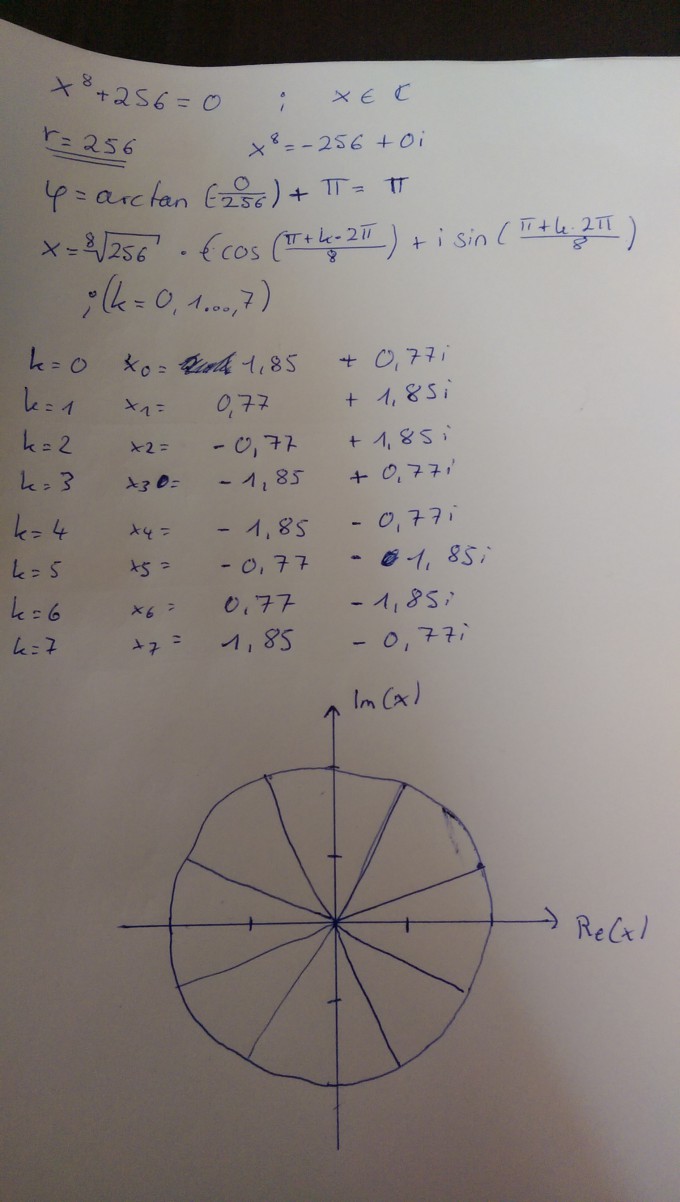 x⁸+256 = 0 ; x ∈ ℂ
r = 256 x⁸ = -256 + 0i
φ = arctan (-0/256) + π = π
x = ⁸√256 · (cos (π+k·2π/8) + i sin (π+k·2π/8)
; (k = 0, 1...,7)
k = 0 x₀ = 1,85 + 0,77i
k = 1 x₁ = 0,77 + 1,85i
k = 2 x₂ = -0,77 + 1,85i
k = 3 x₃ = -1,85 + 0,77i
k = 4 x₄ = -1,85 - 0,77i
k = 5 x₅ = -0,77 - 1,85i
k = 6 x₆ = 0,77 - 1,85i
k = 7 x₇ = 1,85 - 0,77i
Im(x)
Re(x)